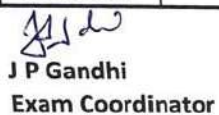 J P Gandhi
Exam Coordinator